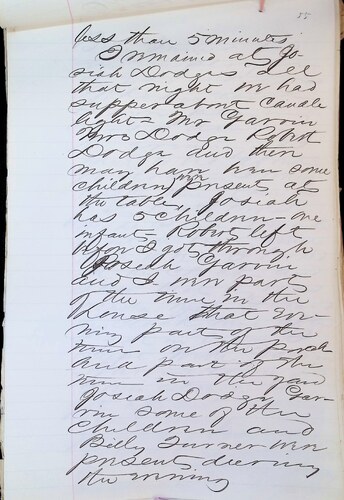 less than 5 minutes
I remained at Jo-
siah Dodges all
that night we had
supper about candle
light - Mr Garvin
Mrs Dodge Robt
Dodge and there
may have been some
children present at
the table, Josiah
has 5 children - one
infant - Robert left
before I got through
Josiah Garvin
and I were part
of the time in the
house that eve-
ning part of the
time on the porch
and part of the
time in the yard
Josiah Dodge Gar-
vin some of the
children and
Billy Turner were
present during
the evening